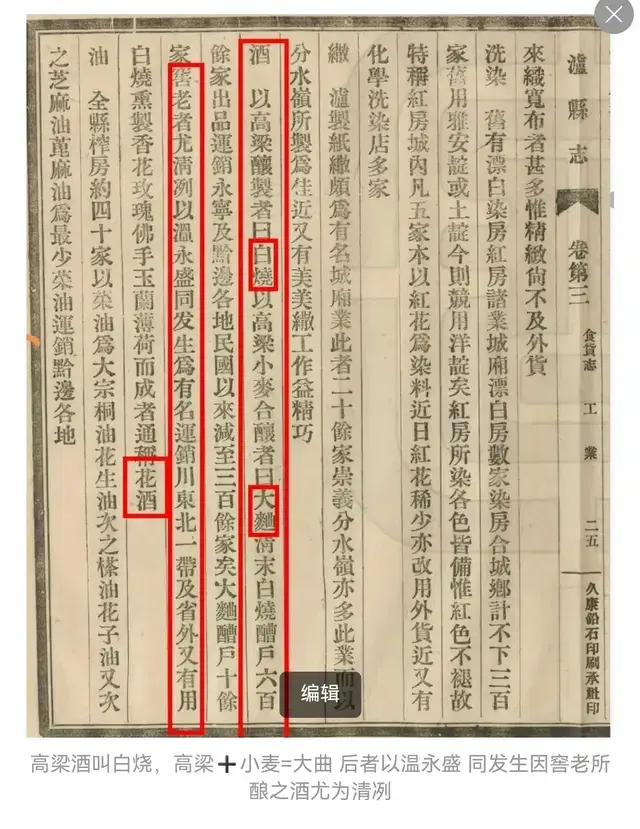 瀘縣志 卷第三 食貨志 工業 二五 久康鉛石印刷承批印
來織寬布者甚多惟精緻尙不及外貨
洗染 舊有漂白染房紅房諸業城廂漂白房數家染房合城鄉計不下三百
家舊用雅安靛或土靛今則競用洋靛矣紅房所染各色皆備惟紅色不褪故
特稱紅房城內凡五家本以紅花爲染料近日紅花稀少亦改用外貨近又有
化學洗染店多家
繖 瀘製紙繖頗爲有名城廂業此者二十餘家崇義分水嶺亦多此業而以
分水嶺所製爲佳近又有美美繖工作益精巧
酒 以高粱釀製者曰白燒以高粱小麥合釀者曰大麯淸末白燒醩戶六百
餘家出品運銷永寧及黔邊各地民國以來減至三百餘家矣大麯醩戶十餘
家窖老者尤淸冽以溫永盛同发生爲有名運銷川東北一帶及省外又有用
白燒熏製香花玫瑰佛手玉蘭薄荷而成者通稱花酒
油 全縣榨房約四十家以菜油爲大宗桐油花生油次之榤油花子油又次
之芝麻油萞麻油爲最少菜油運銷黔邊各地
编辑
高粱酒叫白烧，高粱➕小麦=大曲 后者以温永盛 同发生因窖老所
酿之酒尤为清冽